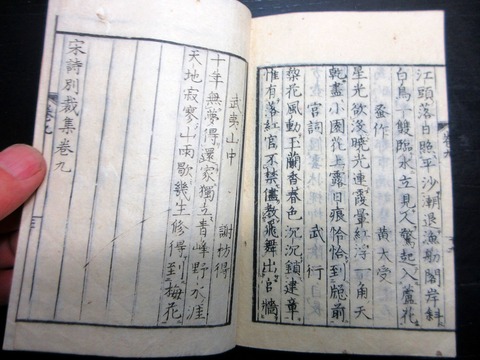 江頭落日照平沙潮退漁舠閣岸斜
白鳥一雙臨水立見人驚起入蘆花
蚤作 黃大受
星光欲沒曉光連霞暈紅浮一角天
乾盡小園花上露日痕恰恰到牕前
宮詞 武衍
梨花風動玉蘭香春色沉沉鎖建章
惟有落紅官不禁儘教飛舞出宮牆
武夷山中 謝枋得
十年無夢得還家獨立青峰野水涯
天地寂寥山雨歇幾生修得到梅花
宋詩別裁集卷九